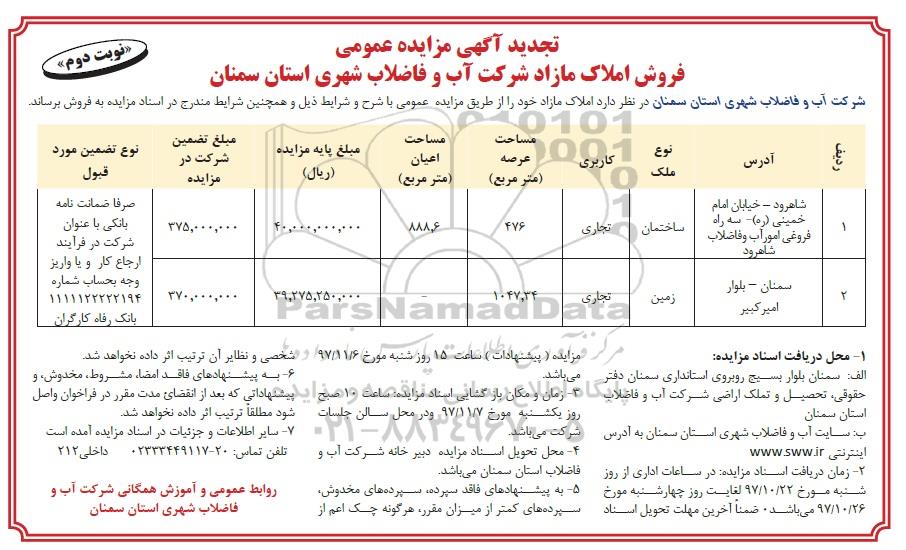 تجدید آگهی مزایده عمومی
«نوبت دوم»
فروش املاک مازاد شرکت آب و فاضلاب شهری استان سمنان
شرکت آب و فاضلاب شهری استان سمنان در نظر دارد املاک مازاد خود را از طریق مزایده عمومی با شرح و شرایط ذیل و همچنین شرایط مندرج در اسناد مزایده به فروش برساند.
ردیف آدرس نوع ملک کاربری مساحت عرصه (متر مربع) مساحت اعیان (متر مربع) مبلغ پایه مزایده (ریال) مبلغ تضمین شرکت در مزایده نوع تضمین مورد قبول
۱ شاهرود – خیابان امام خمینی (ره)- سه راه فروغی امورآب وفاضلاب شاهرود ساختمان تجاری ۴۷۶ ۸۸۸,۶ ۴۰,۰۰۰,۰۰۰,۰۰۰ ۳۷۵,۰۰۰,۰۰۰ صرفا ضمانت نامه بانکی با عنوان شرکت در فرآیند ارجاع کار و یا واریز وجه بحساب شماره ۱۱۱۱۱۲۲۲۲۲۱۹۴ بانک رفاه کارگران
۲ سمنان – بلوار امیرکبیر زمین تجاری ۱۰۴۷,۳۴ - ۳۹,۲۷۵,۲۵۰,۰۰۰ ۳۷۰,۰۰۰,۰۰۰
۱- محل دریافت اسناد مزایده:
الف: سمنان بلوار بسیج روبروی استانداری سمنان دفتر
حقوقی، تحصیل و تملک اراضی شرکت آب و فاضلاب
استان سمنان
ب: سایت آب و فاضلاب شهری استان سمنان به آدرس
اینترنتی www.sww.ir
۲- زمان دریافت اسناد مزایده: در ساعات اداری از روز
شنبه مورخ ۹۷/۱۰/۲۲ لغایت روز چهارشنبه مورخ
۹۷/۱۰/۲۶ می‌باشد۰ ضمناً آخرین مهلت تحویل اسناد
مزایده ( پیشنهادات ) ساعت ۱۵ روز شنبه مورخ ۹۷/۱۱/۶
می‌باشد.
۳- زمان و مکان باز گشایی اسناد مزایده: ساعت ۱۰ صبح
روز یکشنبه مورخ ۹۷/۱۱/۷ ودر محل سالن جلسات
شرکت می‌باشد.
۴- محل تحویل اسناد مزایده دبیر خانه شرکت آب و
فاضلاب استان سمنان می‌باشد.
۵- به پیشنهادهای فاقد سپرده، سپرده‌های مخدوش،
سپرده‌های کمتر از میزان مقرر، هرگونه چک اعم از
شخصی و نظایر آن ترتیب اثر داده نخواهد شد.
۶- به پیشنهادهای فاقد امضا، مشروط، مخدوش، و
پیشنهاداتی که بعد از انقضائ مدت مقرر در فراخوان واصل
شود مطلقاً ترتیب اثر داده نخواهد شد.
۷- سایر اطلاعات و جزئیات در اسناد مزایده آمده است
تلفن تماس: ۲۰-۰۲۳۳۳۴۴۹۱۱۷ داخلی۲۱۲
روابط عمومی و آموزش همگانی شرکت آب و
فاضلاب شهری استان سمنان
ParsNamadData